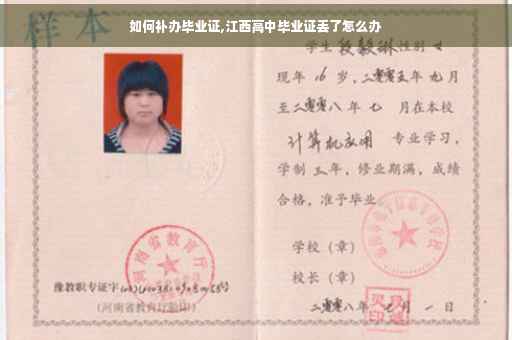 如何补办毕业证,江西高中毕业证丢了怎么办
样本
学生段毅琳性别女
现年16岁,二零零五年九月
至二零零八年七月在本校
计算机应用 专业学习,
学制三年,修业期满,成绩
合格,准予毕业
学校(章)
校长(章)
二零零八年七月一日
河南省教育厅
豫教职专证字
(河南省教育厅验印)